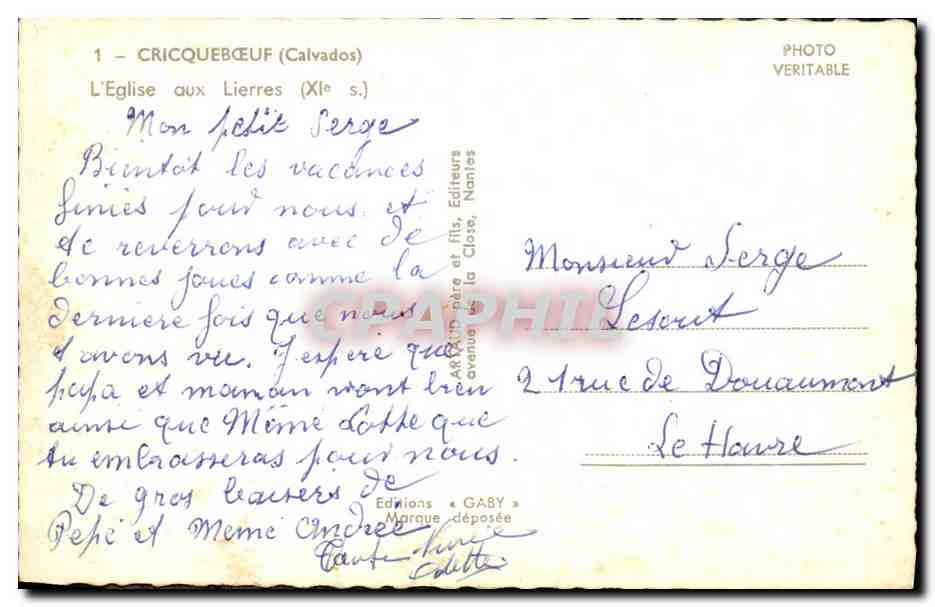 1 - CRICQUEBŒUF (Calvados)
L'Eglise aux Lierres (XIe s.)
PHOTO
VERITABLE
Mon petit Serge
Bientôt les vacances
finies pour nous et
te reverrons avec de
bonnes joues comme la
dernière fois que nous
t'avons vu. J'espère que
papa et maman vont bien
ainsi que Mémé Lotte que
tu embrasseras pour nous.
De gros baisers de
Pépé et Mémé Andrée
Tante
Odette
ARTAUD père et fils, Editeurs
avenue de la Close, Nantes
CPAPHIL
Editions « GABY »
Marque déposée
Monsieur Serge
Lesout
21 rue de Douaumont
Le Havre